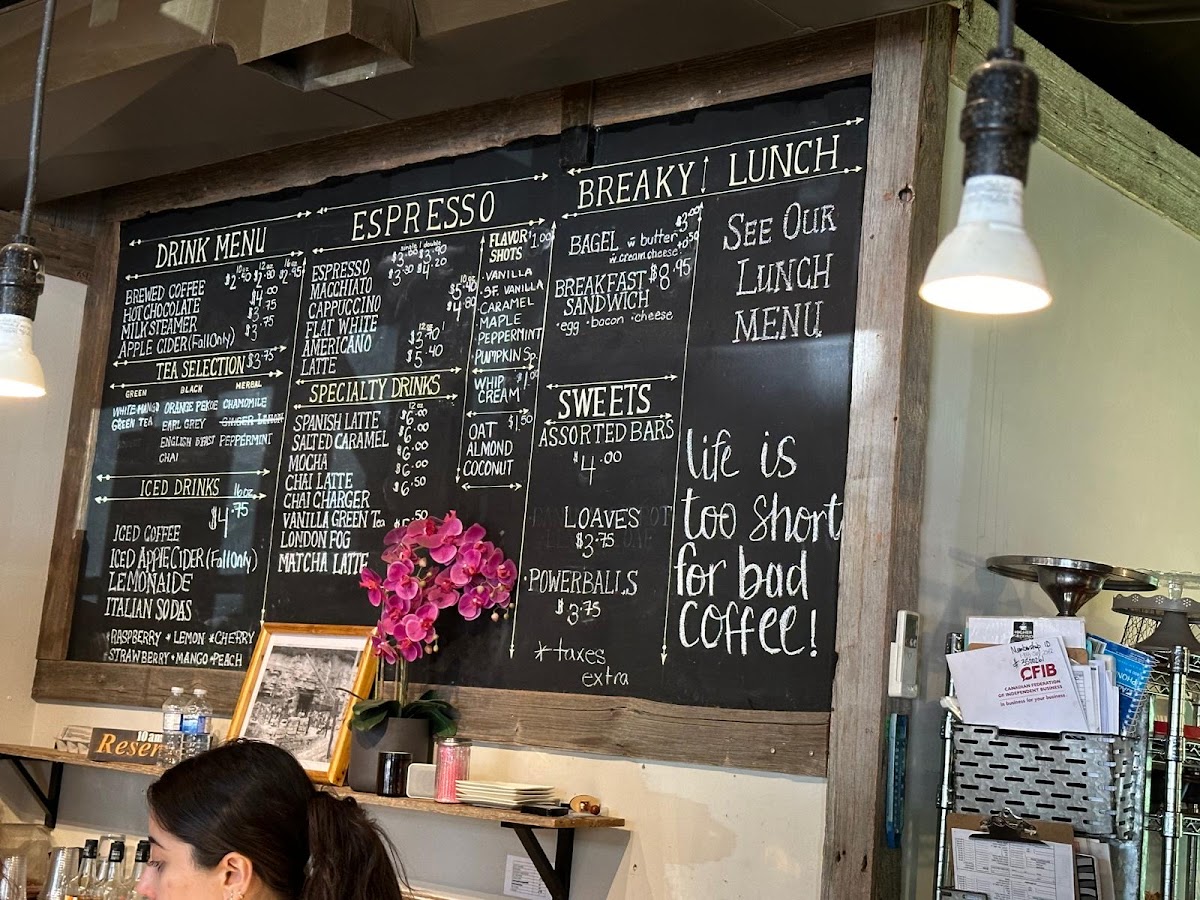 DRINK MENU
10oz 12oz 16oz
BREWED COFFEE $2.60 $2.80 $2.95
HOT CHOCOLATE $4.00
MILK STEAMER $3.75
APPLE CIDER (Fall Only) $3.75
TEA SELECTION $3.75
GREEN BLACK HERBAL
WHITE MANGO ORANGE PEKOE CHAMOMILE
GREEN TEA EARL GREY GINGER LEMON
ENGLISH B'FAST PEPPERMINT
CHAI
ICED DRINKS 16oz
$4.75
ICED COFFEE
ICED APPLE CIDER (Fall Only)
LEMONAIDE
ITALIAN SODAS
*RASPBERRY *LEMON *CHERRY
STRAWBERRY • MANGO • PEACH
ESPRESSO
single / double
ESPRESSO $3.00 $3.90
MACCHIATO $3.30 $4.20
CAPPUCCINO $5.40
FLAT WHITE $4.80
12oz
AMERICANO $3.70
LATTE $5.40
SPECIALTY DRINKS
12oz
SPANISH LATTE $6.00
SALTED CARAMEL $6.00
MOCHA $6.00
CHAI LATTE $6.00
CHAI CHARGER $6.50
VANILLA GREEN Tea
LONDON FOG
MATCHA LATTE
FLAVOR $1.00
SHOTS
• VANILLA
• S.F. VANILLA
CARAMEL
MAPLE
PEPPERMINT
PUMPKIN Sp.
WHIP $1.00
CREAM
OAT $1.50
ALMOND
COCONUT
BREAKY LUNCH
BAGEL w butter $3.00
w cream cheese +0.50
BREAKFAST $8.95
SANDWICH
•egg •bacon •cheese
SWEETS
ASSORTED BARS
$4.00
LOAVES
$3.75
•POWERBALLS
$3.75
*taxes
extra
SEE OUR
LUNCH
MENU
life is
too short
for bad
coffee!
10am
Reser
Membership ID
CFIB
CANADIAN FEDERATION
OF INDEPENDENT BUSINESS
In business for your business